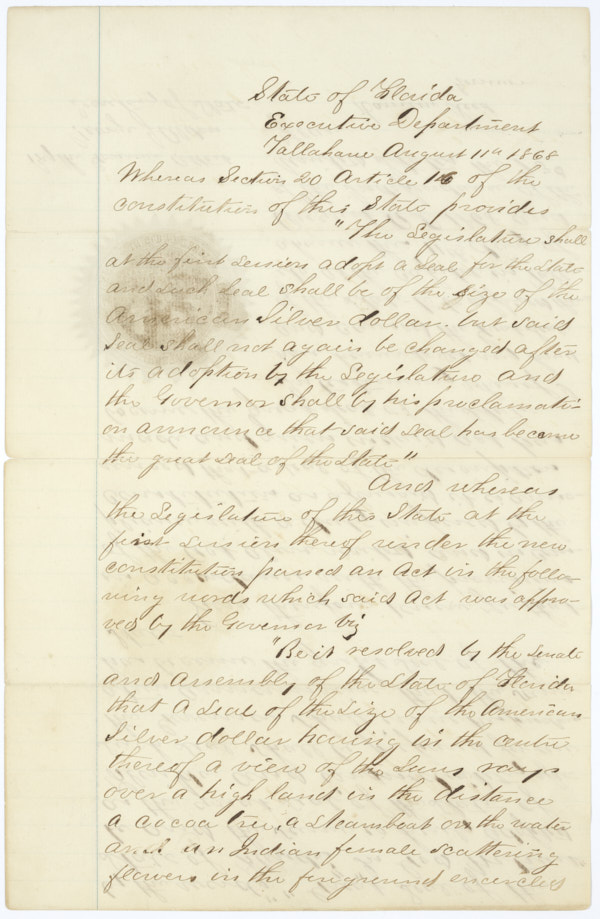 State of Florida
Executive Department
Tallahasse August 11th 1868
Whereas Section 20 Article 16 of the
constitution of this State provides
"The Legislature shall
at the first session adopt a seal for the State
and such seal shall be of the size of the
American Silver dollar. but said
seal shall not again be changed after
its adoption by the Legislature and
the Governor shall by his proclamati-
on announce that said seal has become
the great seal of the State"
And whereas
the Legislature of this State at the
first session thereof under the new
constitution passed an Act in the follo-
wing words which said Act was appro-
ved by the Governor viz
"Be it resolved by the Senate
and Assembly of the State of Florida
that a seal of the size of the American
silver dollar having in the centre
thereof a view of the Suns rays
over a high land in the distance
a cocoa tree, a steamboat on the water
and an Indian female scattering
flowers in the foreground encircled